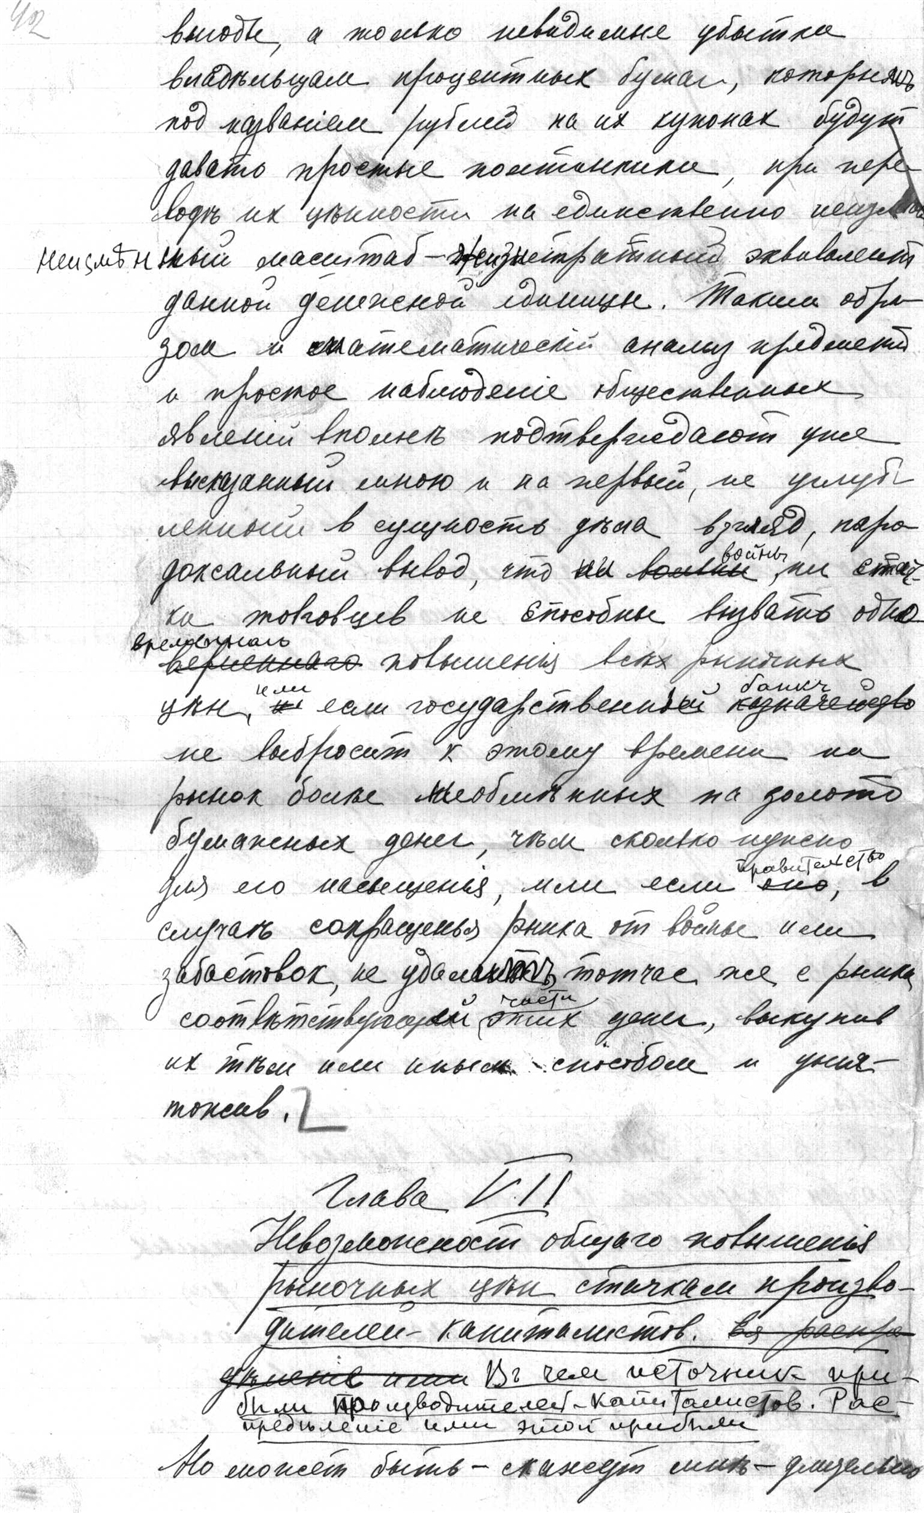 42
выгоды, а только невидимые убытки
владѣльцам процентных бумаг, которымъ
под названіем рублей на их купонах будут
давать простые полтинники, при пере-
водѣ их цѣнности на единственно неизмѣн
неизмѣнный масштаб – жизнетратный эквивалент
данной денежной единицы. Таким обра-
зом и математическій анализ предмета
и простое наблюденіе общественных
явленій вполнѣ подтверждают уже
высказанный мною и на первый, не углуб-
ленный в сущность дѣла взгляд, пара-
доксальный вывод, что ни войны, ни стач-
ки торговцев не способны вызвать одно-
временнаго повышенія всѣх рыночных
цѣн, или если государственный банкъ
не выбросит к этому времени на
рынок болѣе необмѣнных на золото
бумажных денег, чѣм сколько нужно
для его насыщенія, или если правительство, в
случаѣ сокращенья рынка от войны или
забастовок, не удалитъ тотчас же с рынка
соотвѣтствующей части этих денег, выкупив
их тѣм или иным способом и унич-
тожив.
Глава VII
Невозможност общаго повышенія
рыночных цѣн стачкам произво-
дителей-капиталистов.
Въ чем источник при-
были производителей-капиталистов. Рас-
предѣленіе ими этой прибыли
Но может быть – скажут мнѣ – длительно